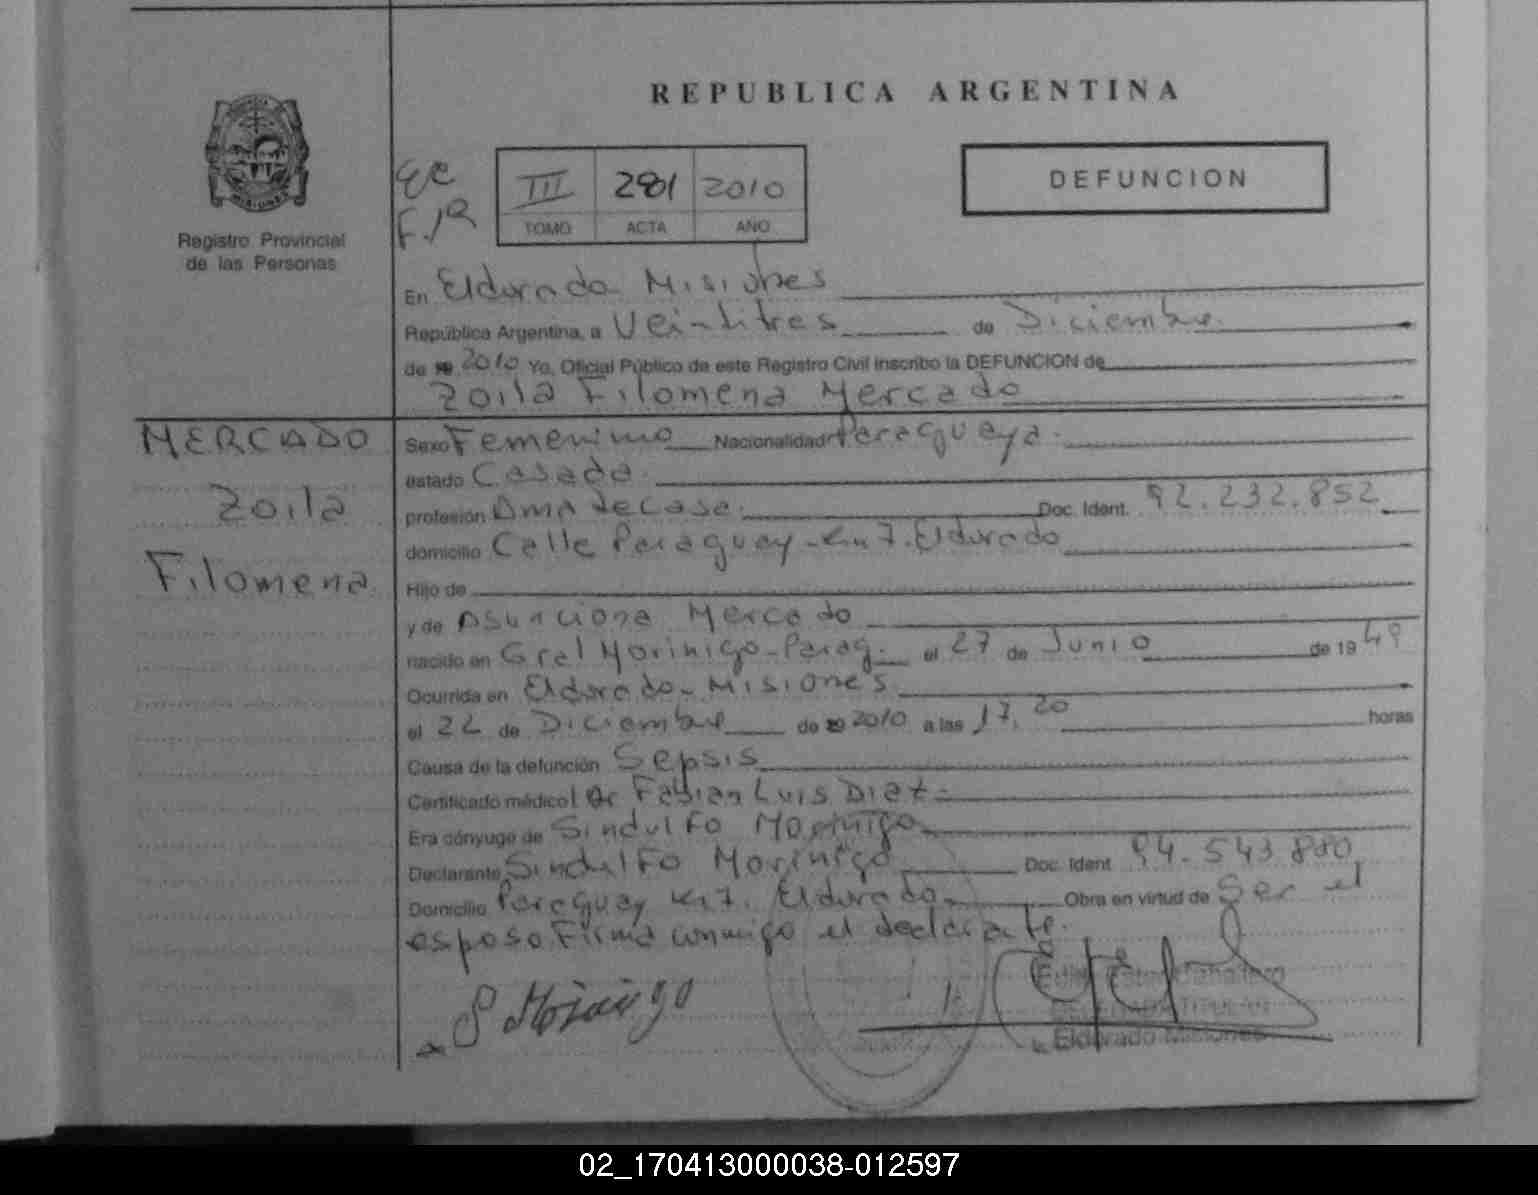 REPUBLICA ARGENTINA
Registro Provincial
de las Personas
III 2010
TOMO ACTA AÑO
DEFUNCION
En Eldorado Misiones
República Argentina, a Veintitres de Diciembre
de 2010 Yo, Oficial Público de este Registro Civil inscribo la DEFUNCION de
Zoila Filomena Mercado
MERCADO
Zoila
Filomena
Sexo Femenino Nacionalidad Paraguaya
estado Casada
profesión Ama de Casa Doc. Ident. 92.232.852
domicilio Calle Paraguay - Km 7. Eldorado
Hijo de
y de Asunciona Mercado
nacido en Gral Morinigo - Parag. el 27 de Junio de 1949
Ocurrida en Eldorado - Misiones
el 22 de Diciembre de 2010 a las 17.20 horas
Causa de la defunción Sepsis
Certificado médico Dr Fabian Luis Diaz
Era cónyuge de Sindulfo Morinigo
Declarante Sindulfo Morinigo Doc. Ident 94.543.880
Domicilio Paraguay Km 7. Eldorado Obra en virtud de Ser el
esposo. Firma conmigo el declarante.
S Morinigo
Eldorado Misiones
02_170413000038-012597